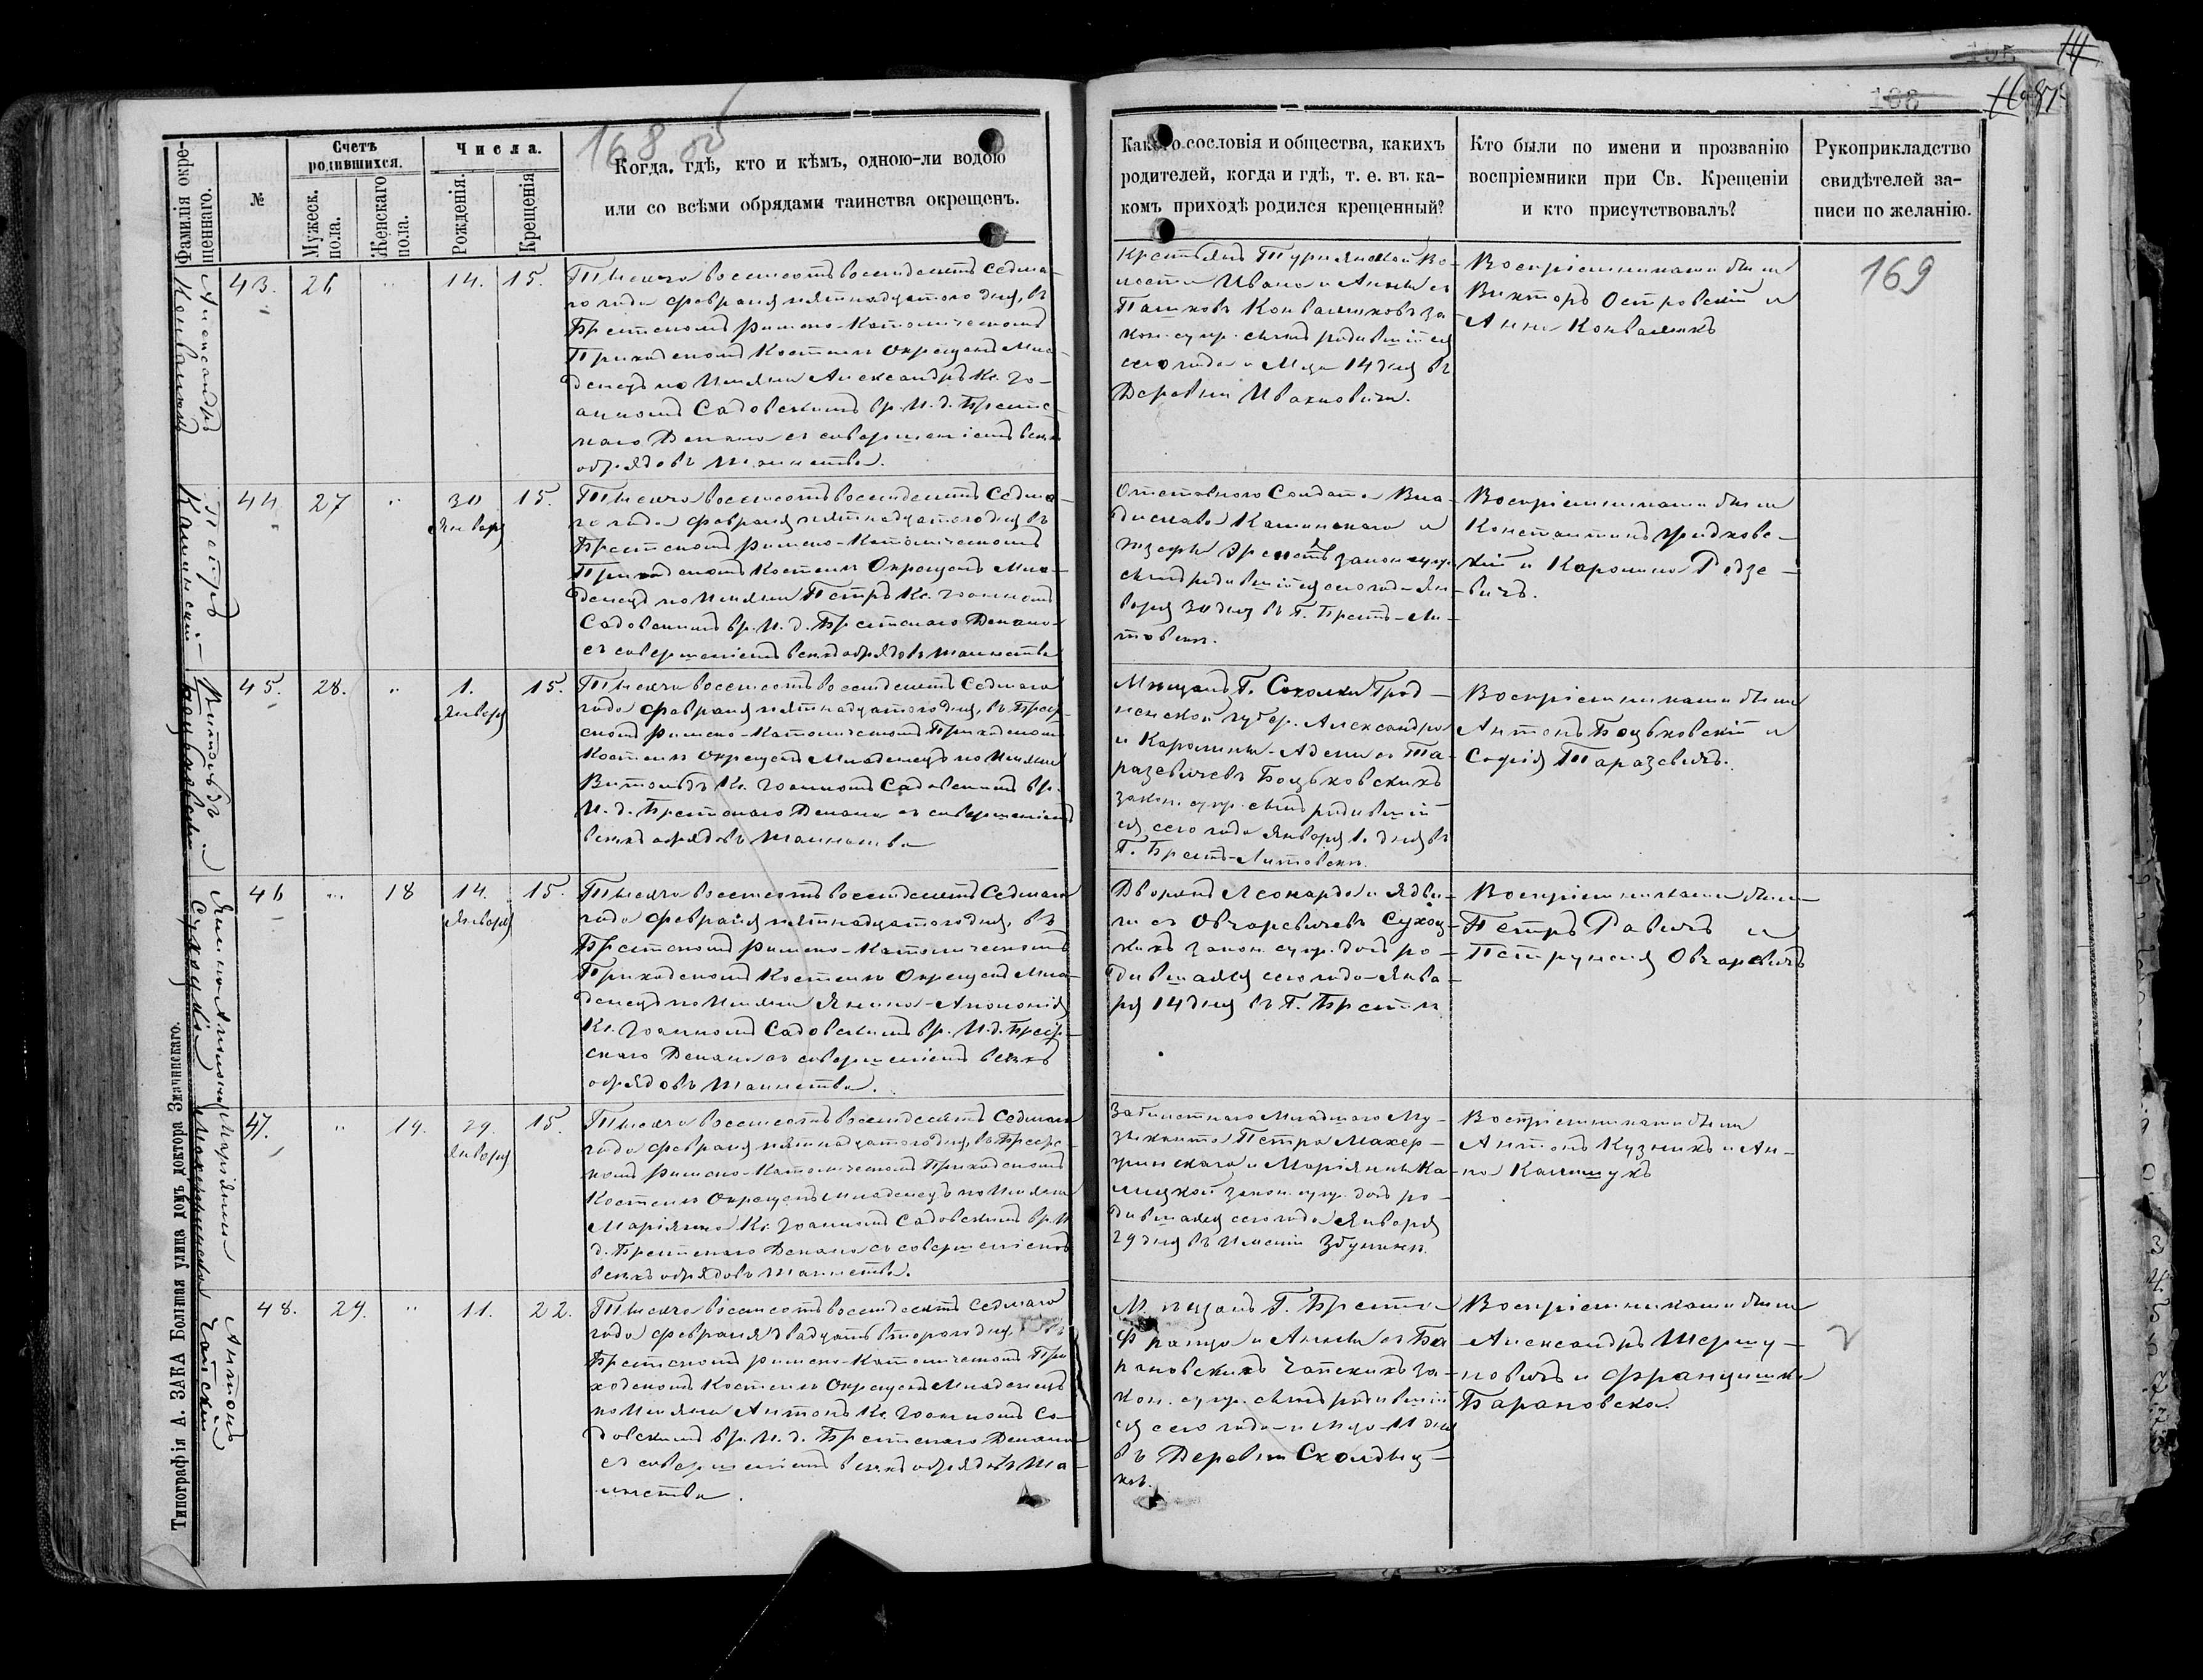 168 об
Фамилія окре-
щеннаго.
№
Счетъ
родившихся.
Мужеск.
пола.
Женскаго
пола.
Числа.
Рожденія.
Крещенія
Когда, гдѣ, кто и кѣмъ, одною-ли водою
или со всѣми обрядами таинства окрещенъ.
Александръ
43. 26 " 14. 15.
Тысяча восемсотъ восемдесятъ седма-
го года февраля пятнадцатого дня, въ
Брестскомъ Римско-Католическомъ
Приходскомъ Костелѣ Окрещенъ Мла-
денецъ по Имяни Александръ Кс. Іо-
анномъ Садовскимъ вр. И. д. Брестс-
каго Декана съ совершеніемъ всѣхъ
обрядовъ таинства.
Петръ
Каминскій
44 27 " 30 Января 15.
Тысяча восемсотъ восемдесятъ Седма-
го года февраля пятнадцатого дня въ
Брестскомъ Римско-Католическомъ
Приходскомъ Костелѣ Окрещенъ Мла-
денецъ по Имяни Петръ Кс. Іоанномъ
Садовскимъ вр. И. д. Брестскаго Декана
съ совершеніемъ всѣхъ обрядовъ таинства
Витольдъ
Боцьковскій
45. 28. " 1. Января 15.
Тысяча восемсотъ восемдесятъ Седмаго
года февраля пятнадцатого дня, въ Брест-
скомъ Римско-Католическомъ Приходскомъ
Костелѣ Окрещенъ Младенецъ по Имяни
Витольдъ Кс. Іоанномъ Садовскимъ вр.
И. д. Брестскаго Декана съ совершеніемъ
всѣхъ обрядовъ таинства
Янина-Аполонія
46 " 18 14. Января 15.
Тысяча восемсотъ восемдесятъ Седмаго
года февраля пятнадцатого дня, въ
Брестскомъ Римско-Католическомъ
Приходскомъ Костелѣ Окрещенъ Мла-
денецъ по Имяни Янина-Аполонія
Кс. Іоанномъ Садовскимъ вр. И. д. Брест-
скаго Декана съ совершеніемъ всѣхъ
обрядовъ таинства.
Маріянна
47. " 19. 29. Января 15.
Тысяча восемсотъ восемдесятъ Седмаго
года февраля пятнадцатого дня, въ Брестс-
комъ Римско-Католическомъ Приходскомъ
Костелѣ Окрещенъ Младенецъ по Имяни
Маріянна Кс. Іоанномъ Садовскимъ вр. И.
д. Брестскаго Декана съ совершеніемъ
всѣхъ обрядовъ таинства.
Антонъ
Чапскій
48. 29. " 11. 22.
Тысяча восемсотъ восемдесятъ Седмаго
года февраля двадцать второго дня, въ
Брестскомъ Римско-Католическомъ При-
ходскомъ Костелѣ Окрещенъ Младенецъ
по Имяни Антонъ Кс. Іоанномъ Са-
довскимъ вр. И. д. Брестскаго Декана
съ совершеніемъ всѣхъ обрядовъ Та-
инства.
Типографія А. ЗАКА Большая улица домъ доктора Значинскаго.
108
Какого сословія и общества, какихъ
родителей, когда и гдѣ, т. е. въ ка-
комъ приходѣ родился крещенный?
Кто были по имени и прозванію
воспріемники при Св. Крещеніи
и кто присутствовалъ?
Рукоприкладство
свидѣтелей за-
писи по желанію.
169
Крестьянъ Турнянской Во-
лости Ивана и Анны съ
закон. супр. сынъ родившійся
сего года и М-ца 14 дня въ
Деревни Ивахновичи.
Воспріемниками были
Викторъ Островскій и
Анна Конвалюкъ
Отставного Солдата Вла-
дислава Каминскаго и
закон. супр.
сынъ родившійся сего года Ян-
варя 30 дня въ Г. Брестъ-Ли-
товскѣ.
Воспріемниками были
Константинъ
и Каролина Родзе-
вичъ.
Мѣщанъ Г. Соколки Грод-
ненской губер. Александра
и Каролины-Адели съ Та-
разевичевъ Боцьковскихъ
закон. супр. сынъ родившій-
ся сего года Января 1. дня въ
Г. Брестъ-Литовскѣ.
Воспріемниками были
Антонъ Боцьковскій и
Софія Таразевичъ.
Дворянъ Леонарда и Ядви-
ги съ Овчаревичевъ Сухоц-
кихъ закон. супр. дочь ро-
дившаяся сего года Янва-
ря 14 дня въ Г. Брестѣ
Воспріемниками были
Петръ Равичъ и
Петрунеля Овчаревичъ
Забилетнаго Младшаго Му-
зыканта Петра
и Маріянны Ка-
закон. супр. дочь ро-
дившаяся сего года Января
29 дня въ Имѣніи Збунинѣ.
Воспріемниками были
Антонъ Кузникъ и Ан-
на
Мѣщанъ Г. Бреста
Франца и Анны съ Ба-
рановскихъ Чапскихъ за-
кон. супр. сынъ родившій-
ся сего года и М-ца 11 дня
въ Деревни
Воспріемниками были
Александръ
и Францишка
Барановска.